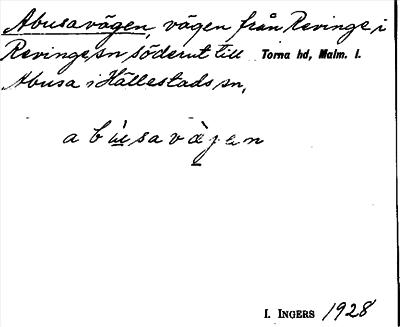 Abusavägen, vägen från Revinge i
Revinge sn söderut till Torna hd, Malm. l.
Abusa i Hällestads sn.
a b ù s a v ä̀ j e n
I. INGERS 1928